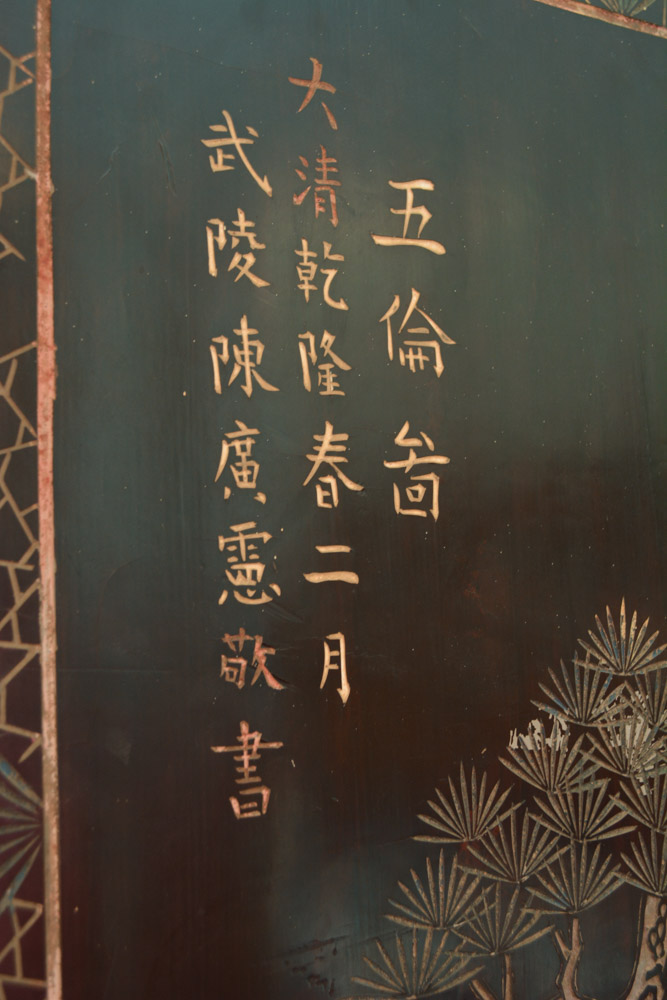 五倫啚
大清乾隆春二月
武陵陳廣憲敬書